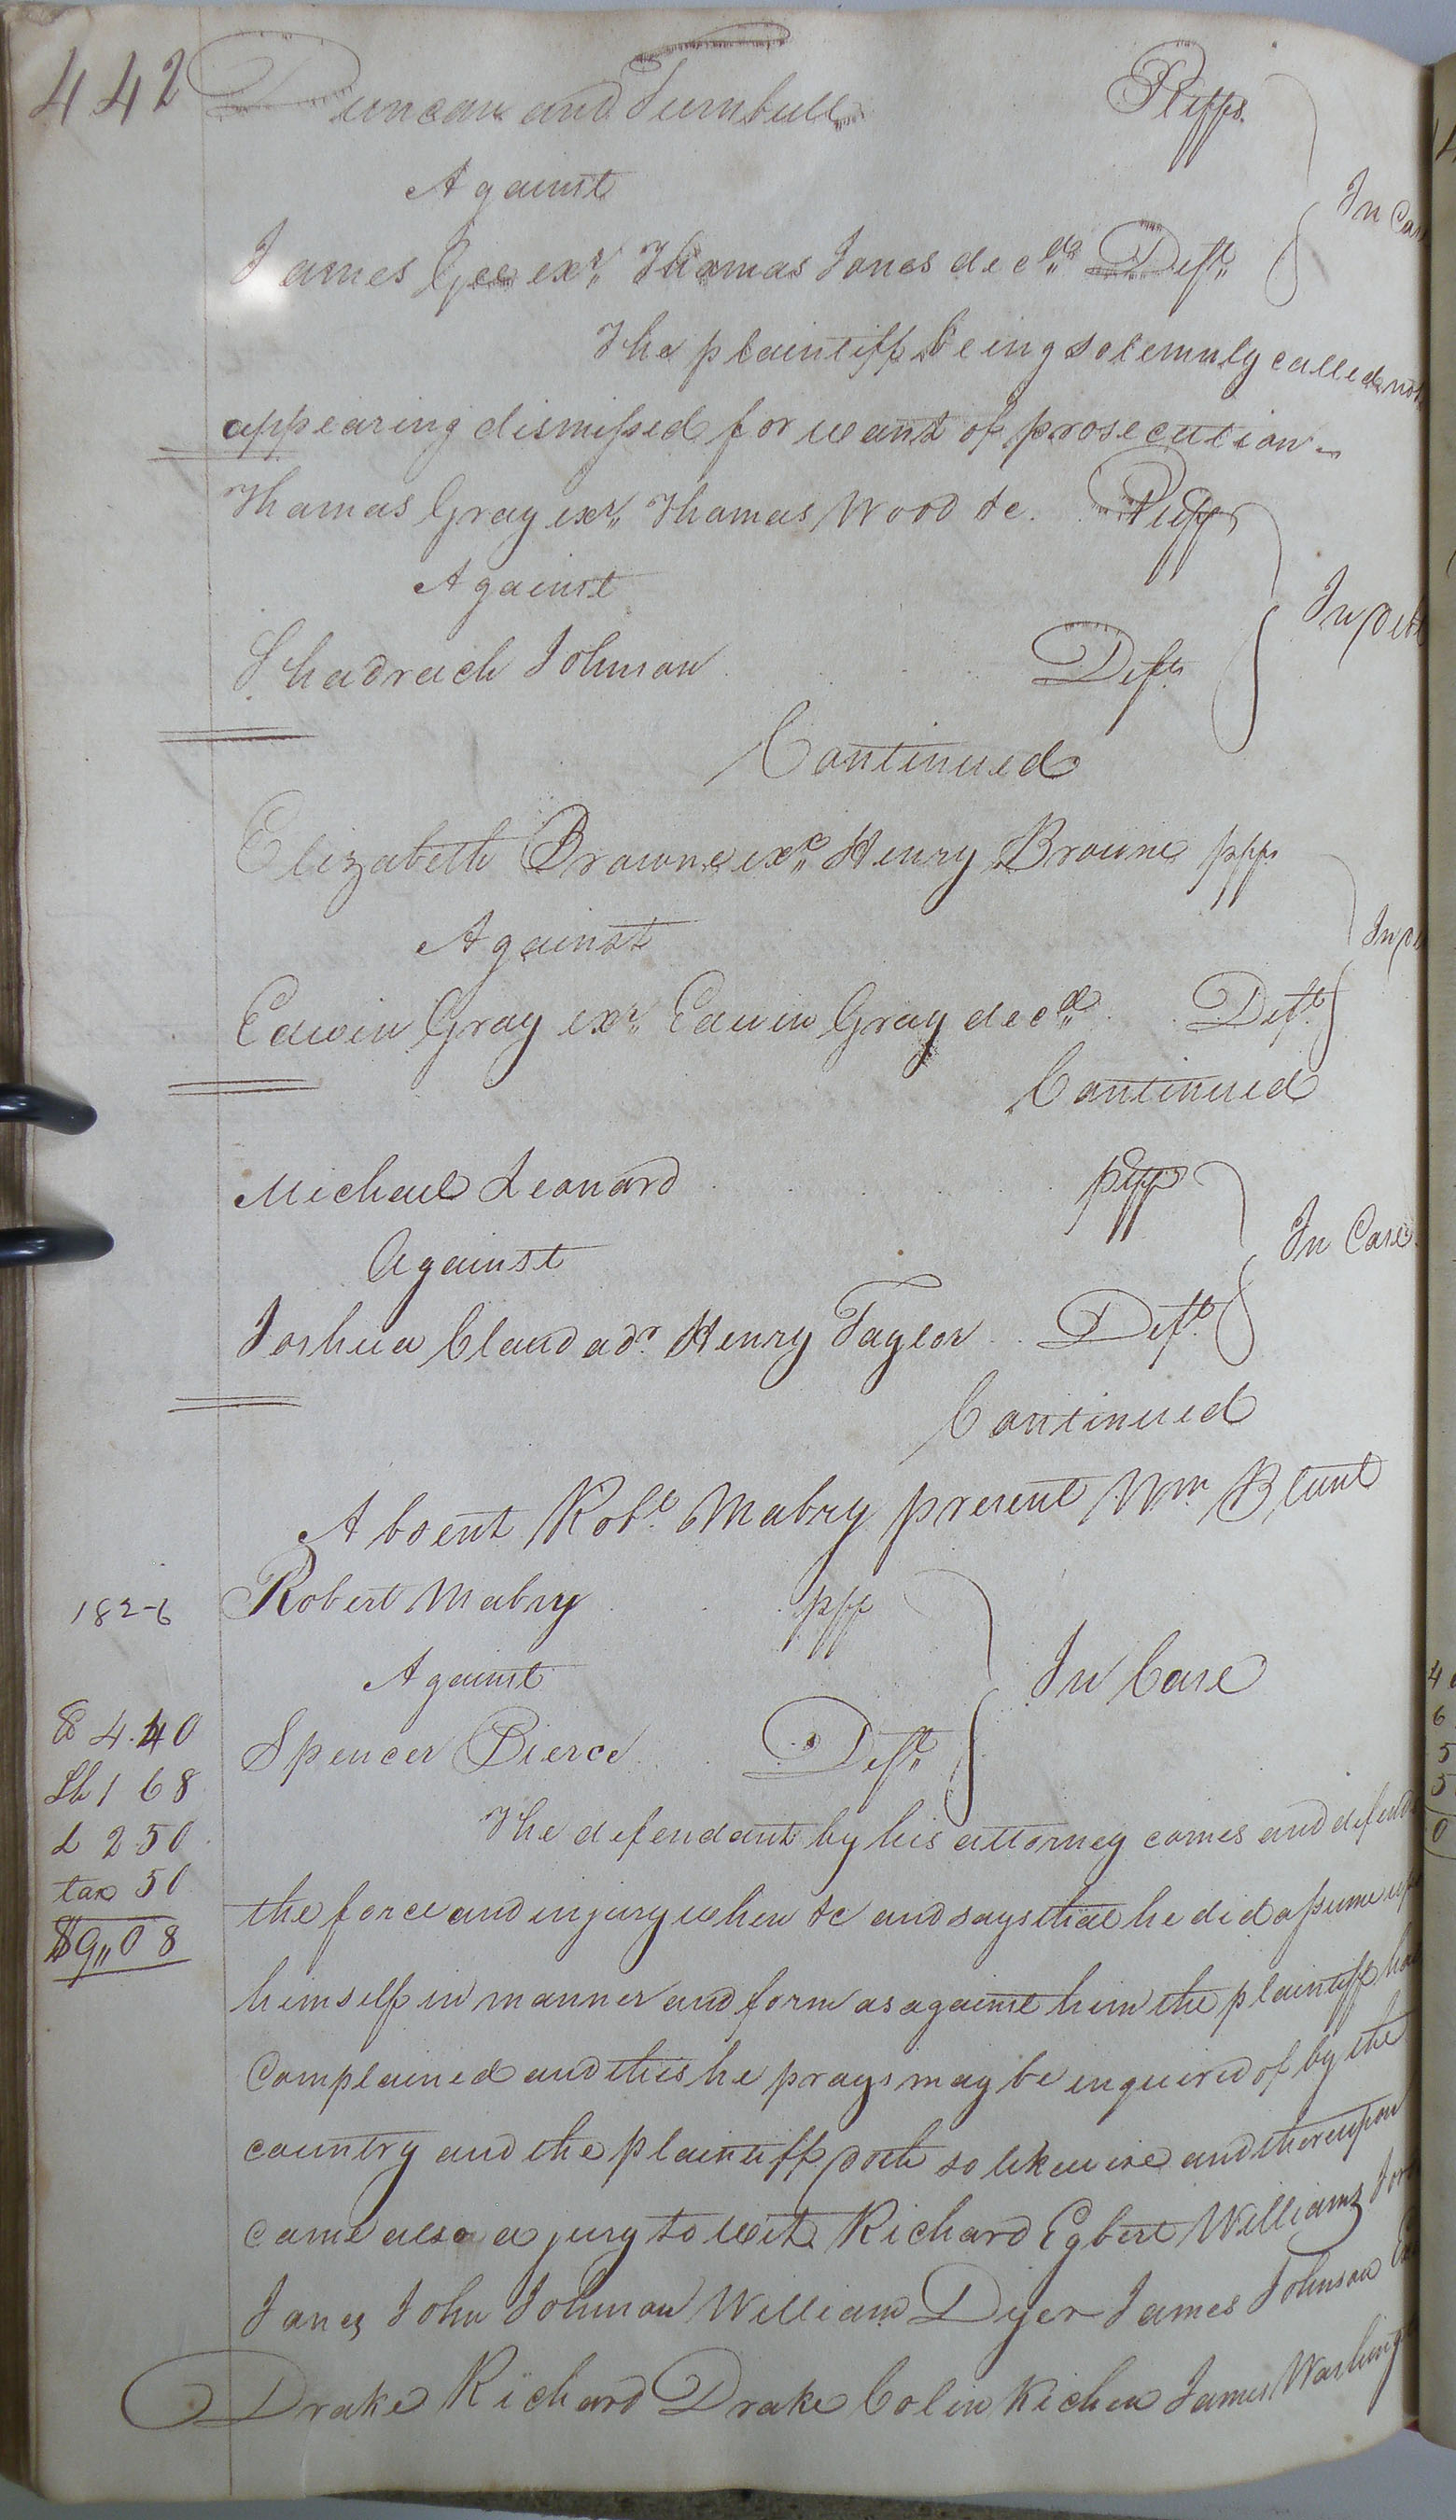 442
Duncan and Turnbull Pltffs
Against
In Ca
James Gee exr. Thomas Jones decd. Deft.
The plaintiff being solemnly called not
appearing dismissed for want of prosecution
Thomas Gray exr. Thomas Wood &c. Pltff
Against
In Deb
Shadrach Johnson Deft.
Continued
Elizabeth Browne exx. Henry Browne pltff
Against
In
Edwin Gray exr. Edwin Gray decd. Deft.
Continued
Michael Leonard pltff
Against
In Case
Joshua Claud adr. Henry Taylor Deft.
Continued
Absent Robt. Mabry present Wm Blunt
Robert Mabry plff
182-6
Against
In Case
C 4.40
Spencer Pierce Deft.
Sh 1 68
L 2 50
The defendant by his attorney comes and defend
tax 50
the force and injury when &c and says that he did assume up
$9,,08
himself in manner and form as against him the plaintiff ha
Complained and this he prays may be inquired of by the
country and the plaintiff doth so likewise and thereupon
came also a jury to wit Richard Egbert Williams
Jones John Johnson William Dyer James Johnson
Drake Richard Drake Colin Kichen James Washing